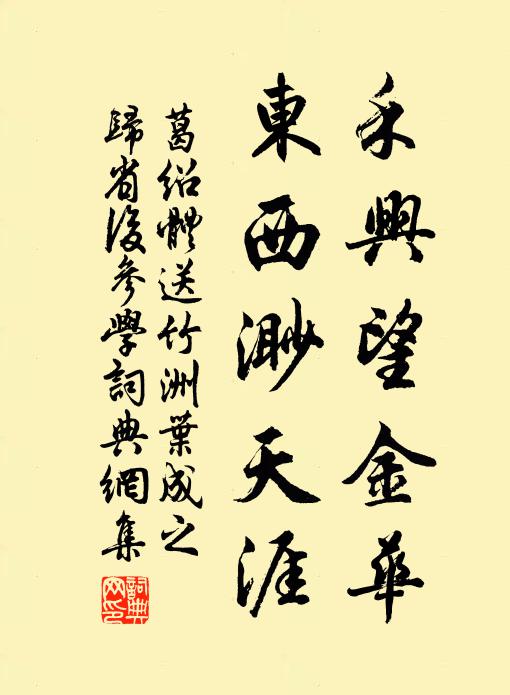 禾興望金華
東西渺天涯
葛紹體送竹洲葉成之
歸省後參學詞典網集
詞典網印